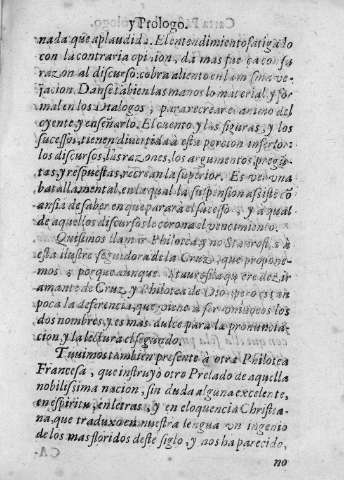 y Prologo.
nada que aplaudida. El entendimiento fatigado
con la contraria opinion, da mas fuerça con la
razon al discurso: cobra aliento en la misma ve-
jacion. Danse tambien las manos lo material, y for-
mal en los Dialogos, para recrear el animo del
oyente, y enseñarlo. El cuento, y las figuras, y los
sucessos, tienen divertida à esta porcion inferior:
los discursos, las razones, los argumentos, pregū-
tas, y respuestas, recrean la superior. Es ver una
batalla mental, en la qual la suspension assiste cō
ansia de saber en que parará el sucesso, y a qual
de aquellos discursos le corona el vencimiento.
Quisimos llamar Philotea, y no Staurofila à
esta ilustre seguidora de la Cruz, que propone-
mos, porque aunque Staurofila quiere dezir
amante de Cruz, y Philotea de Dios, pero es tan
poca la deferencia, que viene à ser unìvocos los
dos nombres, y es mas dulce para la pronuncia-
cion, y la lectura el segundo.
Tuvimos tambien presente à otra Philotea
Francesa, que instruyò otro Prelado de aquella
nobilissima nacion, sin duda alguna excelente,
en espiritu, en letras, y en eloquencia Christia-
na, que traduxo en nuestra lengua un ingenio
de los mas floridos deste siglo, y nos ha parecido,
no